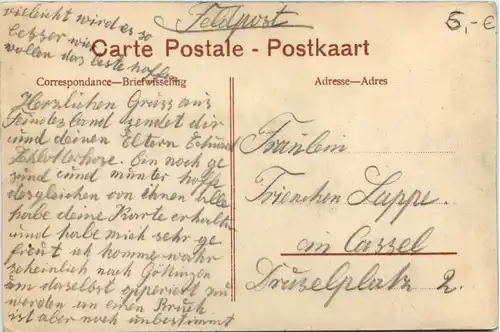 vieleicht wird es so
besser wie
wollen das beste hoffen
Feldpost
6,-€
Carte Postale - Postkaart
Correspondance—Briefwisseling
Adresse—Adres
Herzlichen Gruss aus
Feindesland sendet dir
und deinen Eltern
Bin noch ge
sund und munter hoffe
desgleichen von ihnen alle
habe deine Karte erhalten
und habe mich sehr ge
freut ich komme wahr
scheinlich nach Göttingen
um daselbst operiert zu
werden an einen Bruch
ist aber noch unbestimmt
Fräulein
Trienchen Suppe
in Cassel
Druselplatz 2.